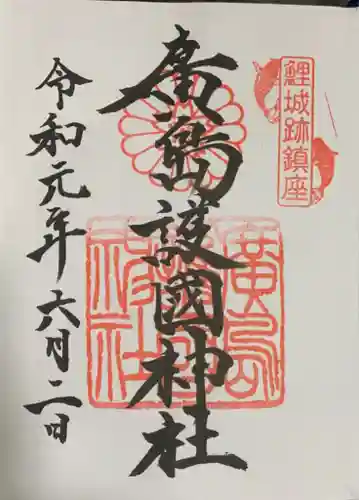 鯉城跡鎮座
廣島護國神社
令和元年六月二日
廣島
護國
神社